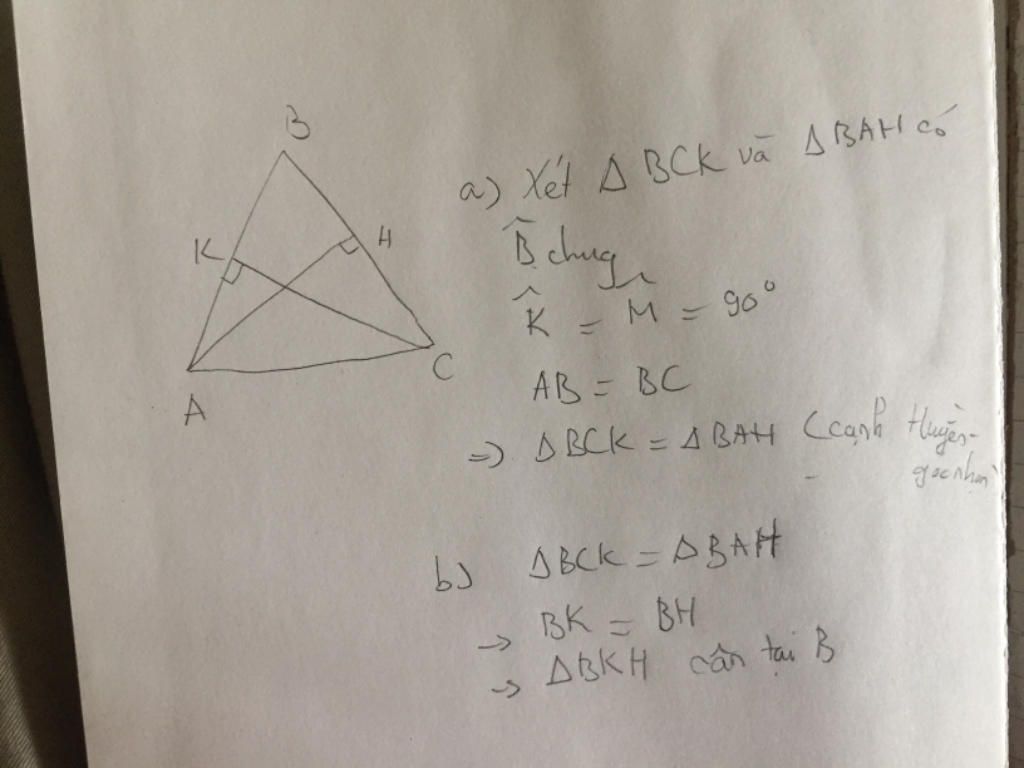 B
K
H
A
C
a) Xét Δ BCK và Δ BAH có
B̂ chung
K̂ = M̂ = 90°
AB = BC
=> Δ BCK = Δ BAH (cạnh Huyền-
- góc nhọn
b) Δ BCK = Δ BAH
→ BK = BH
→ Δ BKH cân tại B